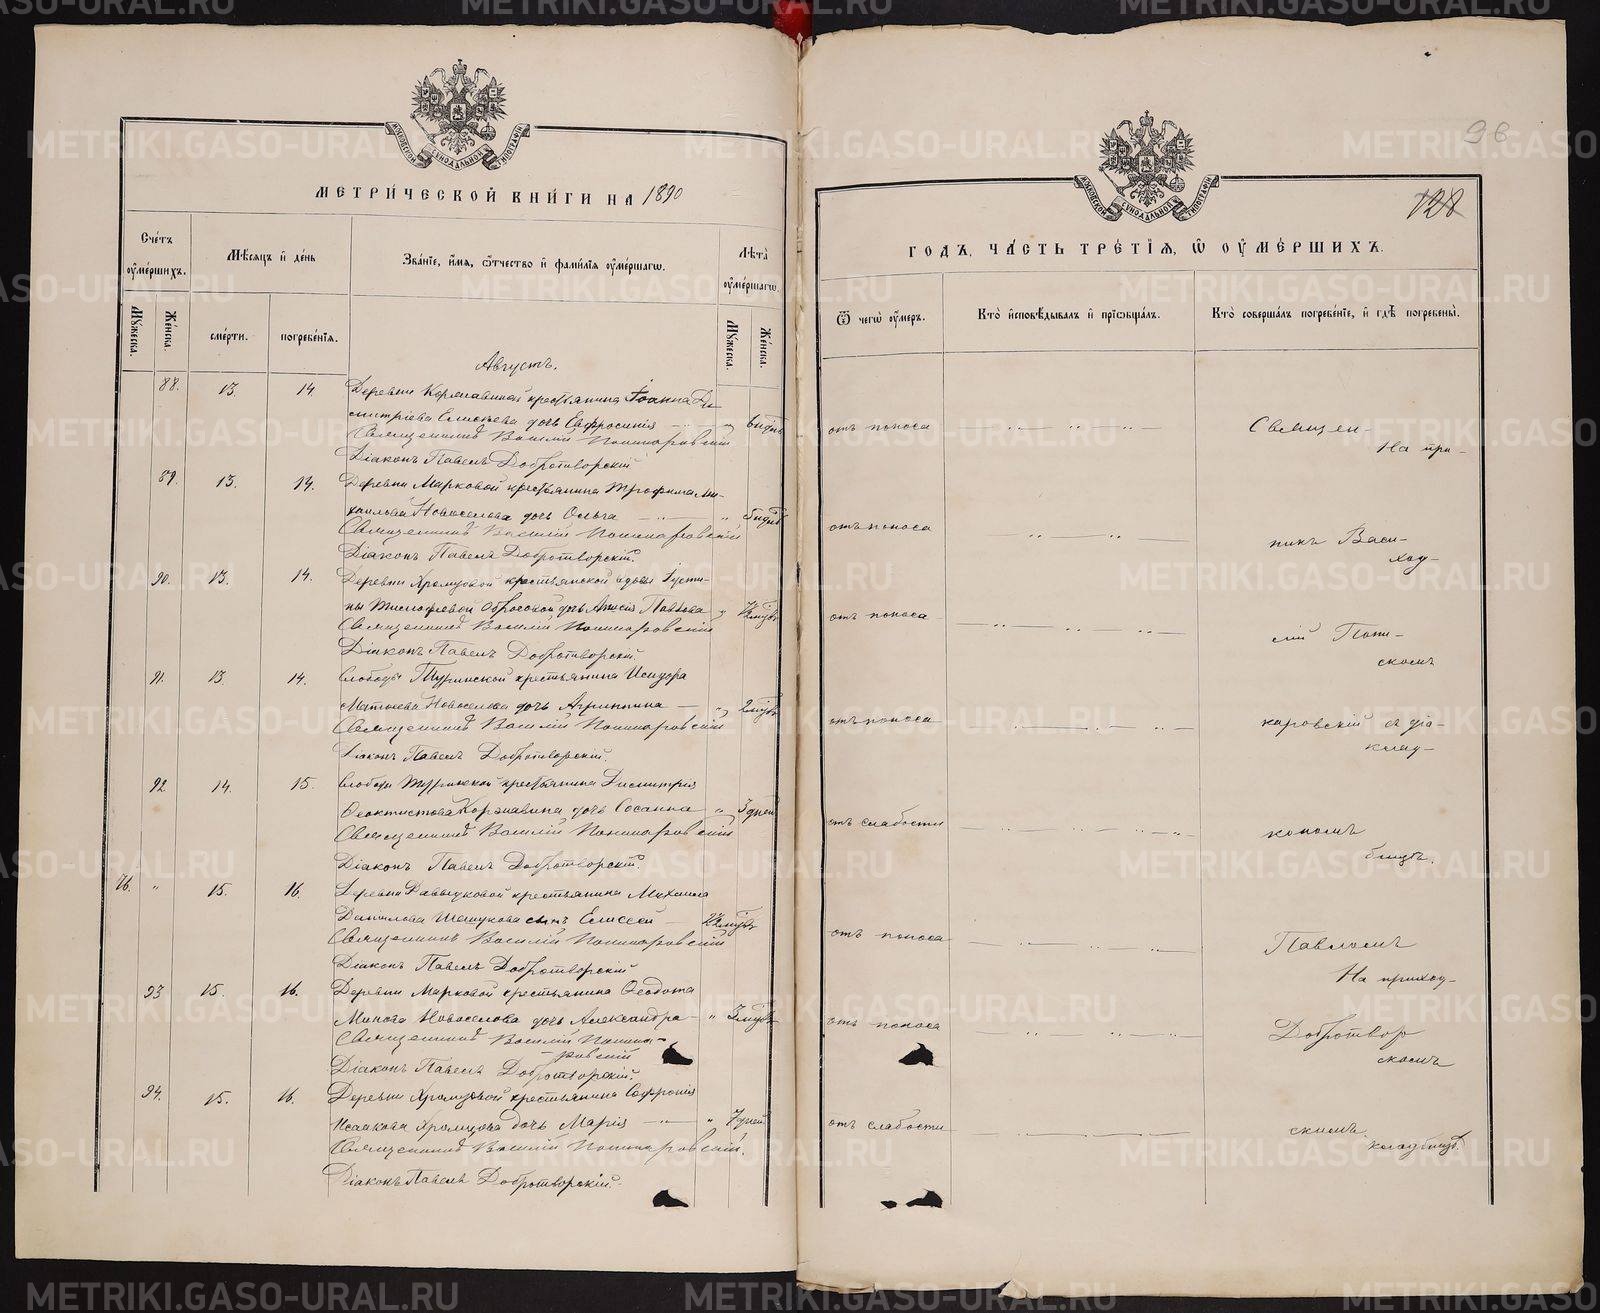 МЕТРИ́ЧЕСКОЙ КНИ́ГИ НА 1890
Сче́тъ ѹ҆ме́ршихъ.
Мѣ́сяцъ и҆ де́нь
Зва́нїе, и҆́мя, ѻ҆́тчество и҆ фами́лїя ѹ҆ме́ршагѡ.
Лѣ́та ѹ҆ме́ршагѡ.
Мꙋ́жеска.
Же́нска.
сме́рти.
погребе́нїя.
Мꙋ́жеска.
Же́нска.
Августъ.
88. 13. 14. Деревни Коржавиной крестьянина Іоанна Ди-
митріева дочь Евфросинія " 6 нядѣль
Священникъ Василій Пономаровскій
Діаконъ Павелъ Добротворскій
89. 13. 14. Деревни Марковой крестьянина Трофима Ми-
хаилова Новоселова дочь Ольга "
Священникъ Василій Пономаровскій
Діаконъ Павелъ Добротворскій.
90. 13. 14. Деревни Храмцовой крестьянской вдовы Іусти-
ны Тимофеевой дочь Анисія Павлова "
Священникъ Василій Пономаровскій
Діаконъ Павелъ Добротворскій.
91. 13. 14. Слободы Туринской крестьянина Исидора
Матвѣева Новоселова дочь Агриппина "
Священникъ Василій Пономаровскій
Діаконъ Павелъ Добротворскій.
92 14. 15. Слободы Туринской крестьянина Димитрія
Ѳеоктистова Коржавина дочь Сосанна " 3 дней
Священникъ Василій Пономаровскій
Діаконъ Павелъ Добротворскій.
76. " 15. 16. Деревни Давыдковой крестьянина Михаила
Данилова Шешукова сынъ Елиссей
Священникъ Василій Пономаровскій
Діаконъ Павелъ Добротворскій
93 15. 16. Деревни Марковой крестьянина Ѳеодота
Новоселова дочь Александра "
Священникъ Василій Понома-
ровскій
Діаконъ Павелъ Добротворскій.
94. 15. 16. Деревни Храмцовой крестьянина Софронія
Исаакова Храмцова дочь Марія " 7 дней
Священникъ Василій Пономаровскій.
Діаконъ Павелъ Добротворскій.
98
128
ГОДЪ, ЧА́СТЬ ТРЕ́ТЇЯ, Ѡ҆ ОУ҆МЕ́РШИХЪ.
Ѿ чегѡ̀ ѹ҆́меръ.
Кто̀ и҆сповѣ́дывалъ и҆ прїѡбща́лъ.
Кто̀ соверша́лъ погребе́нїе, и҆ гдѣ̀ погребены̀.
отъ поноса
Священ-
На при-
отъ поноса
никъ Васи-
ход-
отъ поноса
лій Поно-
скомъ
отъ поноса
маровскій съ діа-
клад-
отъ слабости
кономъ
бищѣ.
отъ поноса
Павломъ
На приход-
отъ поноса
Добротвор
скомъ
отъ слабости
скимъ
кладбищѣ.
METRIKI.GASO-URAL.RU